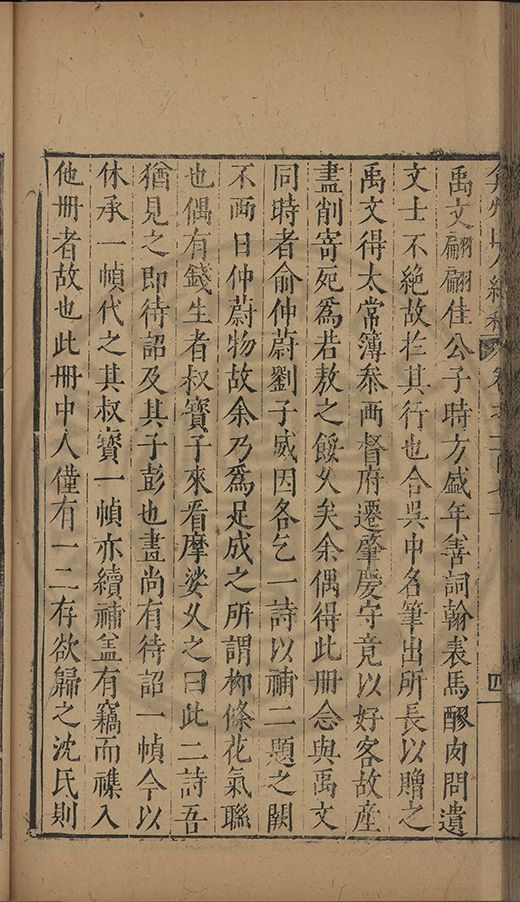 禹文翩翩佳公子時方盛年善詞翰裘馬醪肉問遺
文士不絶故於其行也合吳中名筆出所長以贈之
禹文得太常簿叅西督府遷肇慶守竟以好客故産
盡削寄死爲若敖之餒久矣余偶得此册念與禹文
同時者俞仲蔚劉子威因各乞一詩以補二題之闕
不兩日仲蔚物故余乃爲足成之所謂柳條花氣聯
也偶有錢生者叔寶子來看摩娑久之曰此二詩吾
猶見之即待詔及其子彭也畫尚有待詔一幀今以
休承一幀代之其叔寶一幀亦續補盖有竊而襍入
他册者故也此册中人僅有一二存欲歸之沈氏則
四